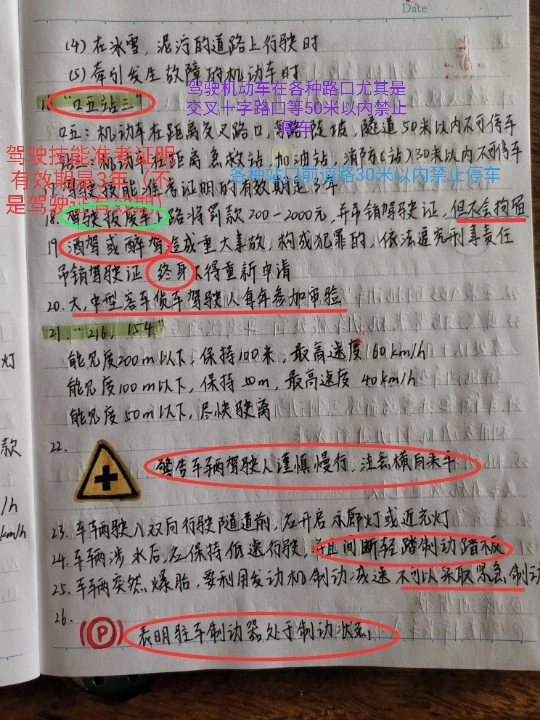 Date
(4) 在冰雪，泥泞的道路上行驶时
(5) 牵引发生故障的机动车时
驾驶机动车在各种路口尤其是
交叉十字路口等50米以内禁止
停车
16. "口五站三"
口五：机动车在距离交叉路口，陡坡，隧道50米以内不可停车
机动车在距离急救站，加油站，消防(站)30米以内不可停车
驾驶技能准考证明
有效期是3年（不
是驾驶证有效期）
各种站口前道路30米以内禁止停车
技能准考证明的有效期是3年
18. 路将罚款200-2000元，并吊销驾驶证，但不会拘留
19. 酒驾或醉驾造成重大事故，构成犯罪的，依法追究刑事责任
吊销驾驶证 终身不得重新申请
20. 大，中型客车货车驾驶人每年参加审验
21. "216, 154"
能见度200m以下，保持100米，最高速度160km/h
能见度100m以下，保持50m，最高速度 40km/h
能见度50m以下，尽快驶离
22.
警告车辆驾驶人谨慎慢行，注意横向来车
23. 车辆驶入双向行驶隧道前，应开启示廓灯或近光灯
24. 车辆涉水后，应保持低速行驶，并且间断轻踏制动踏板
25. 车辆突然爆胎，要利用发动机制动减速 不可以采取紧急制动
26.
P
表明驻车制动器处于制动状态
灯
款
/h
km/h